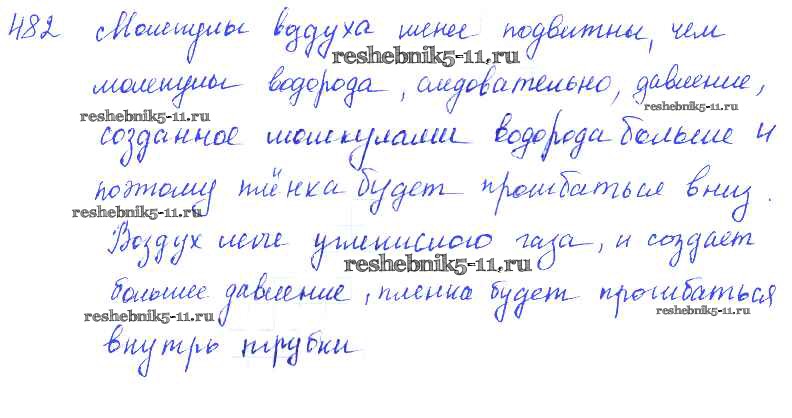 482 Молекулы воздуха менее подвижны, чем
reshebnik5-11.ru
молекулы водорода, следовательно, давление,
reshebnik5-11.ru reshebnik5-11.ru
созданное молекулами водорода больше и
поэтому плёнка будет прогибаться вниз.
reshebnik5-11.ru
Воздух легче углекислого газа, и создает
reshebnik5-11.ru
большее давление, пленка будет прогибаться
reshebnik5-11.ru reshebnik5-11.ru
внутрь трубки